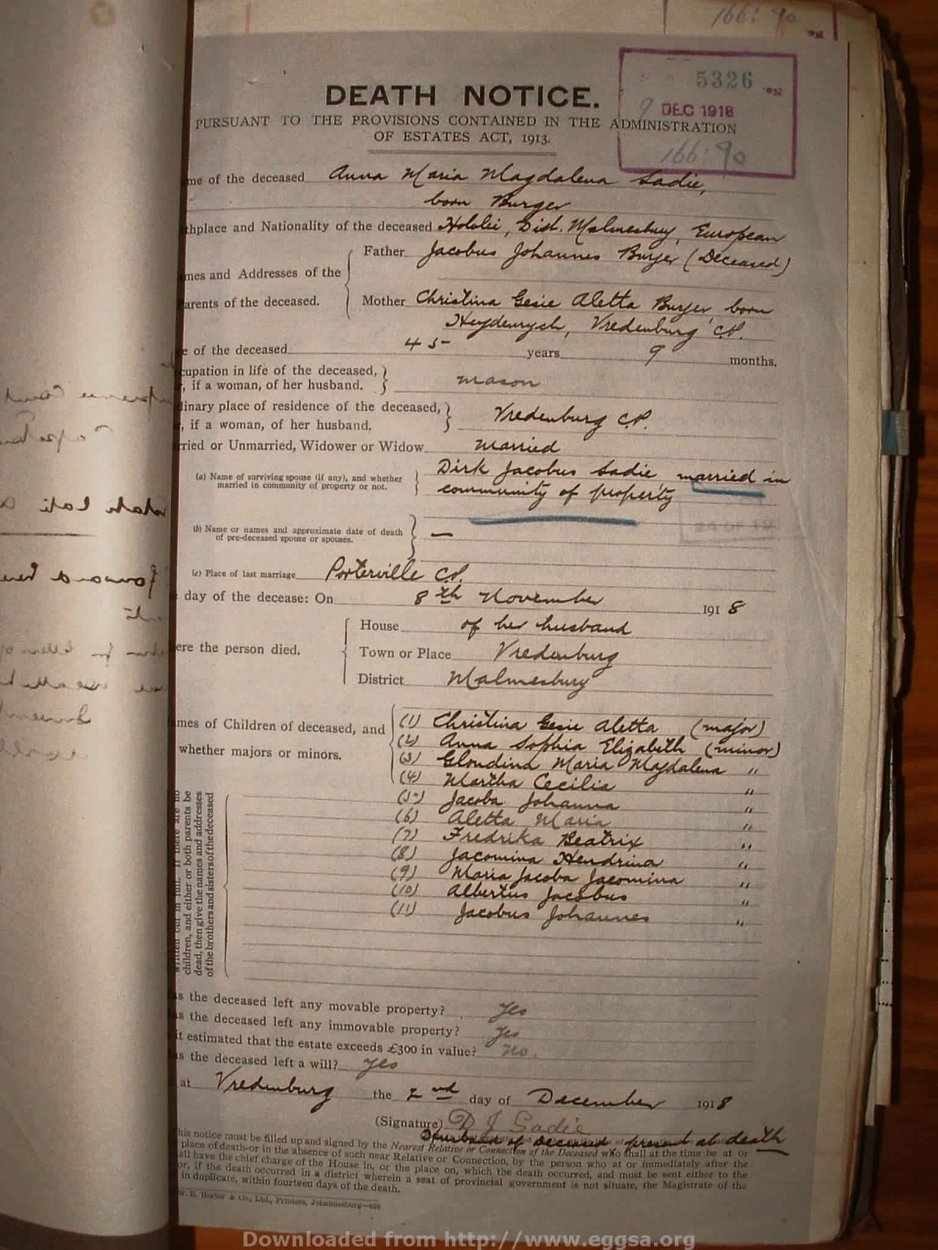 166: 90
5326
9 DEC 1918
166: 90
DEATH NOTICE.
PURSUANT TO THE PROVISIONS CONTAINED IN THE ADMINISTRATION
OF ESTATES ACT, 1913.
me of the deceased Anna Maria Magdalena Sadie,
born Burger
thplace and Nationality of the deceased Dist. Malmesbury, European
Father Jacobus Johannes Burger (Deceased)
mes and Addresses of the
arents of the deceased.
Mother Christina Gesie Aletta Burger born
Heydenrych, Vredenburg C.P.
e of the deceased 45 years 9 months.
cupation in life of the deceased,
, if a woman, of her husband. mason
dinary place of residence of the deceased,
, if a woman, of her husband. Vredenburg C.P.
rried or Unmarried, Widower or Widow married
(a) Name of surviving spouse (if any), and whether
married in community of property or not.
Dirk Jacobus Sadie married in
community of property
(b) Name or names and approximate date of death
of pre-deceased spouse or spouses. —
(c) Place of last marriage Porterville C.P.
day of the decease: On 8th November 1918
House of her husband
ere the person died. Town or Place Vredenburg
District Malmesbury
mes of Children of deceased, and
whether majors or minors.
(1) Christina Gesie Aletta (major)
(2) Anna Sophia Elizabeth (minor)
(3) Gloudina Maria Magdalena "
(4) Martha Cecilia "
(5) Jacoba Johanna "
(6) Aletta Maria "
(7) Fredrika Beatrix "
(8) Jacomina Hendrina "
(9) Maria Jacoba Jacomina "
(10) Albertus Jacobus "
(11) Jacobus Johannes "
written out in full. If there are no
children, and either or both parents be
dead, then give the names and addresses
of the brothers and sisters of the deceased
as the deceased left any movable property? Yes
as the deceased left any immovable property? Yes
it estimated that the estate exceeds £300 in value? No.
as the deceased left a will? Yes
at Vredenburg the 2nd day of December 1918
(Signature) D J Sadie
Husband of deceased present at death
his notice must be filled up and signed by the Nearest Relative or Connection of the Deceased who shall at the time be at or
place of death-or in the absence of such near Relative or Connection, by the person who at or immediately after the
all have the chief charge of the House in, or the place on, which the death occurred, and must be sent either to the
or, if the death occurred in a district wherein a seat of provincial government is not situate, the Magistrate of the
in duplicate, within fourteen days of the death.
W. E. Hortor & Co., Ltd., Printers, Johannesburg
Downloaded from http://www.eggsa.org